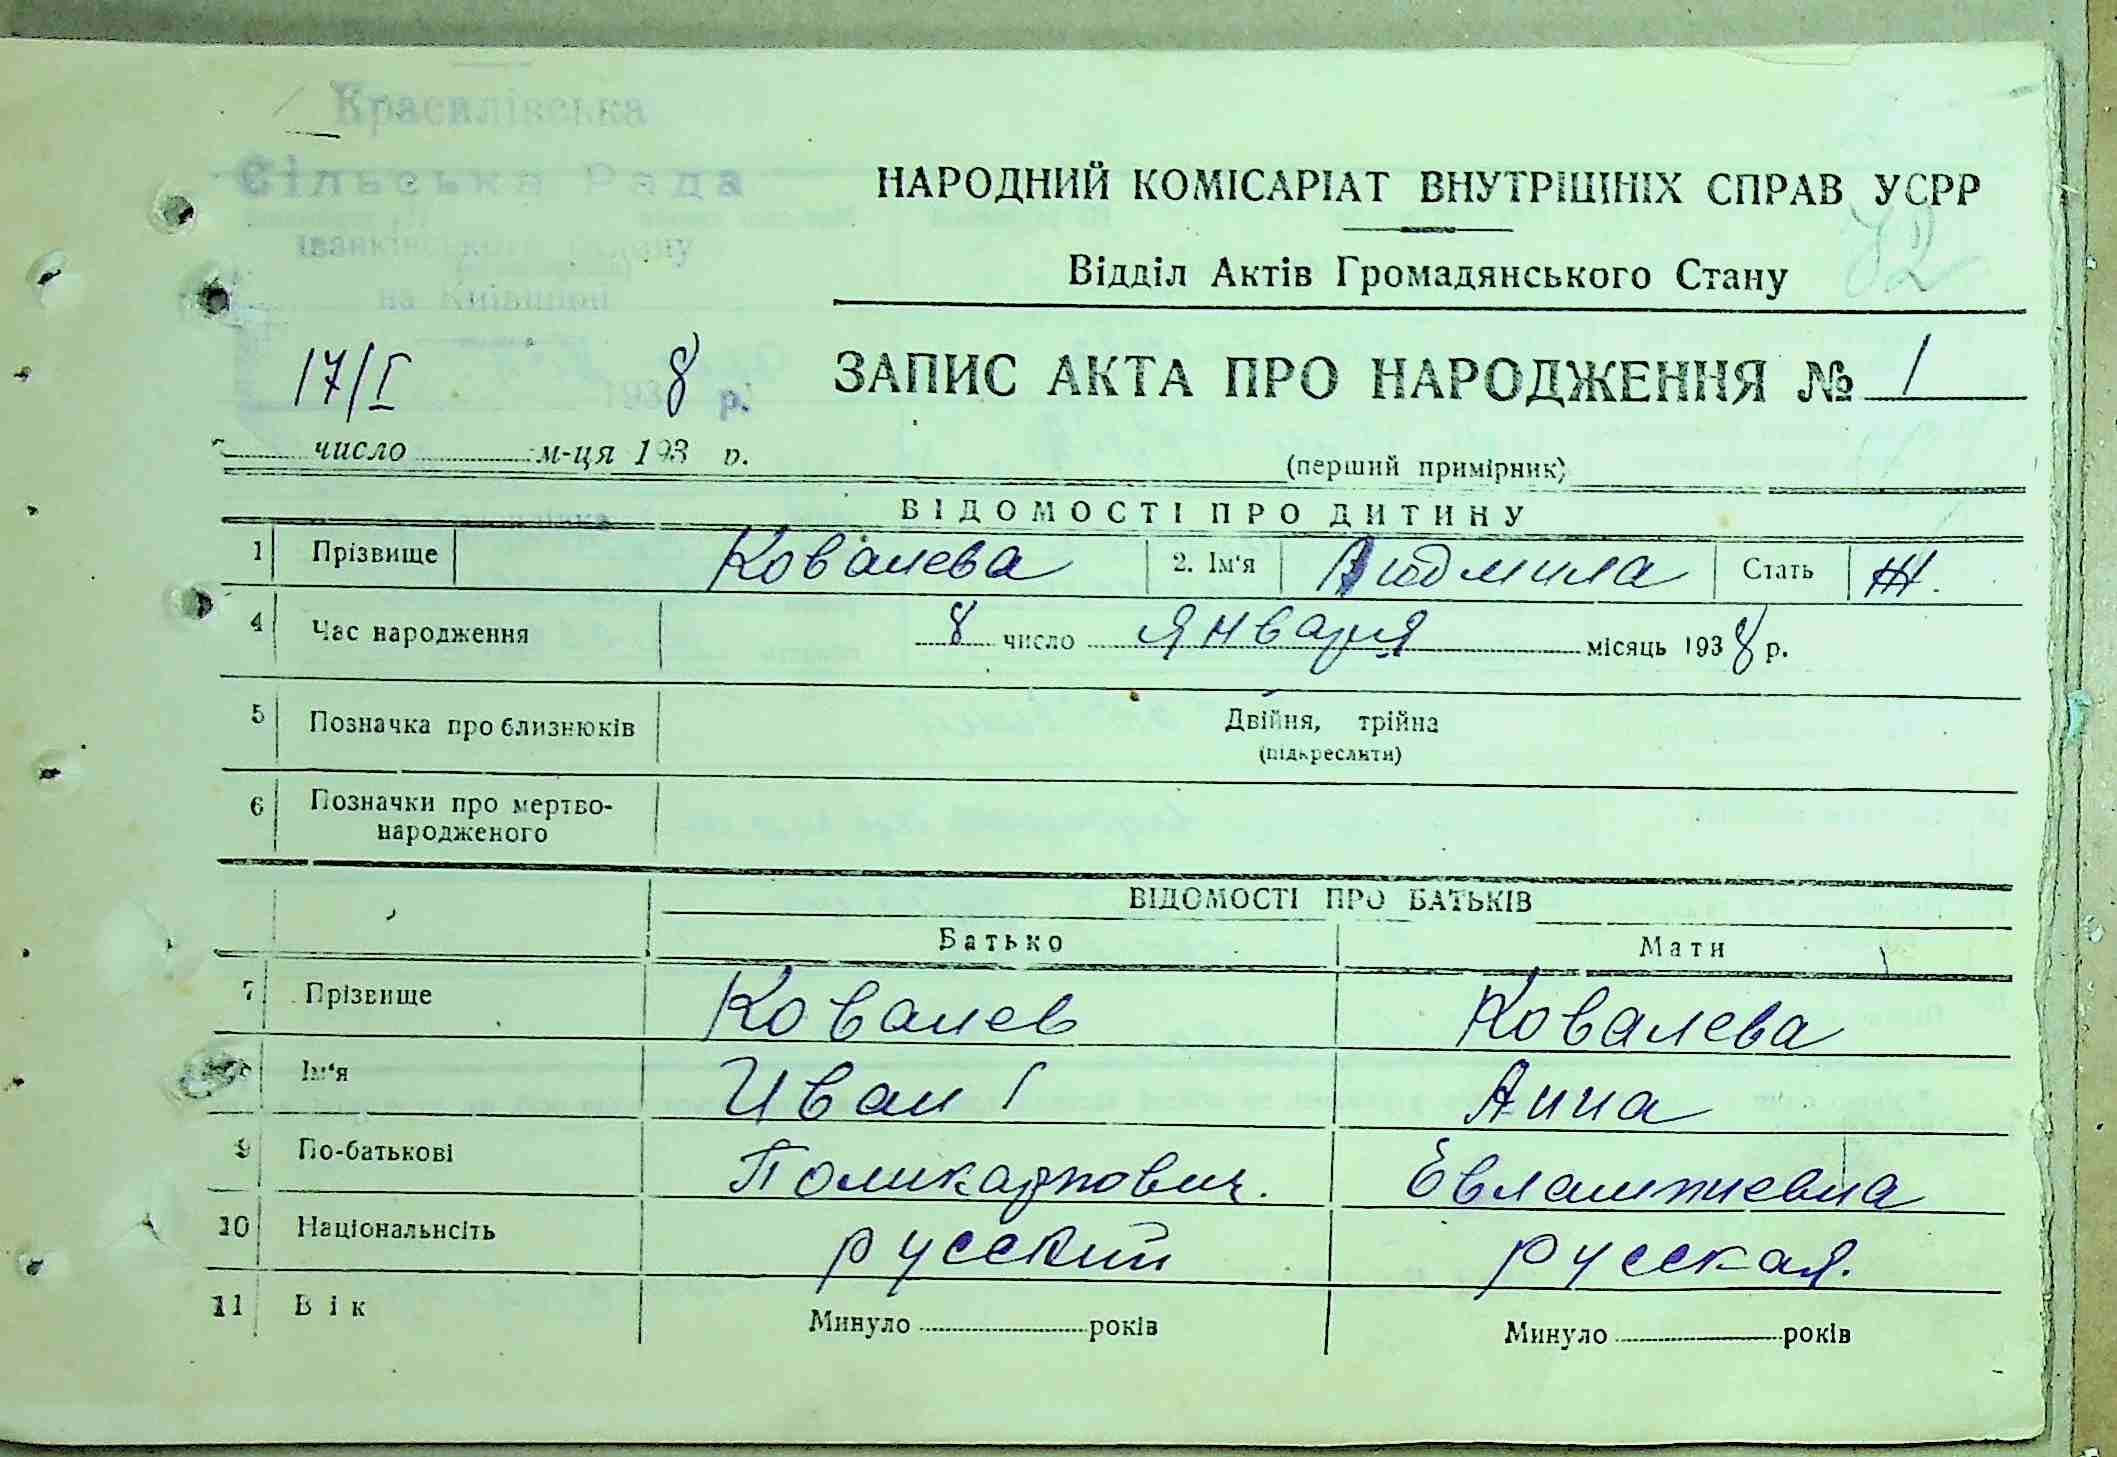 Красилівська
Сільська Рада
Іванківського району
на Київщині
НАРОДНИЙ КОМІСАРІАТ ВНУТРІШНІХ СПРАВ УСРР
72
Відділ Актів Громадянського Стану
17/I 1938 р.
ЗАПИС АКТА ПРО НАРОДЖЕННЯ № 1
число м-ця 193 р.
(перший примірник)
ВІДОМОСТІ ПРО ДИТИНУ
1 Прізвище Ковалева 2. Ім'я Людмила Стать Ж.
4 Час народження 8 число января місяць 1938 р.
5 Позначка про близнюків Двійня, трійна
(підкреслити)
6 Позначки про мертво-
народженого
ВІДОМОСТІ ПРО БАТЬКІВ
Батько Мати
7 Прізвище Ковалев Ковалева
Ім'я Иван Анна
9 По-батькові Поликарпович. Евлампиевна
10 Національнсіть русский русская.
11 Вік Минуло років Минуло років